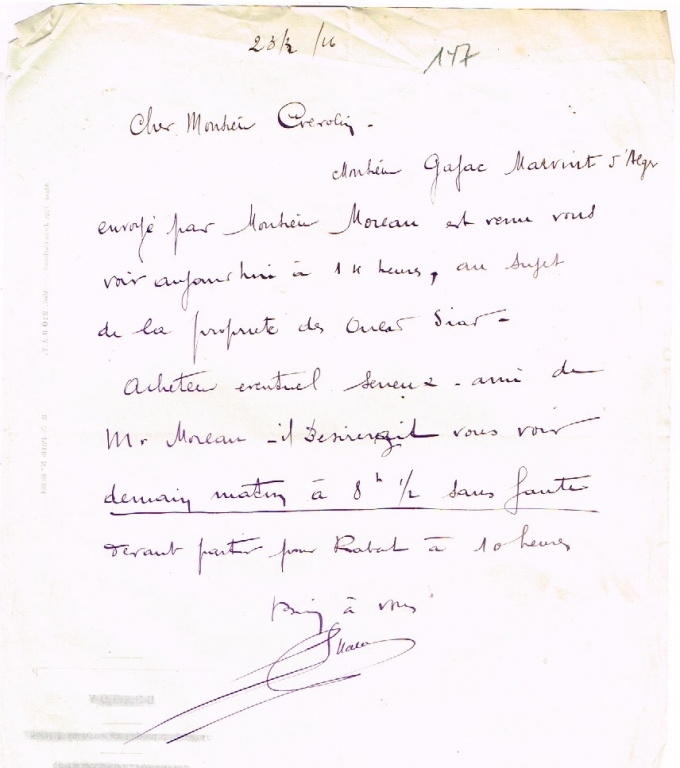 23/2/16
147
Cher Monsieur Crerolin -
Monsieur Gajac d'Alger
envoyé par Monsieur Moreau est venu vous
voir aujourd'hui à 14 heures, au sujet
de la propriete des Ouled Siar -
Acheteur eventuel serieux - ami de
Mr Moreau - il Desirerait vous voir
demain matin à 8h 1/2 sans faute
devant partir pour Rabat à 10 heures
Bien à vous